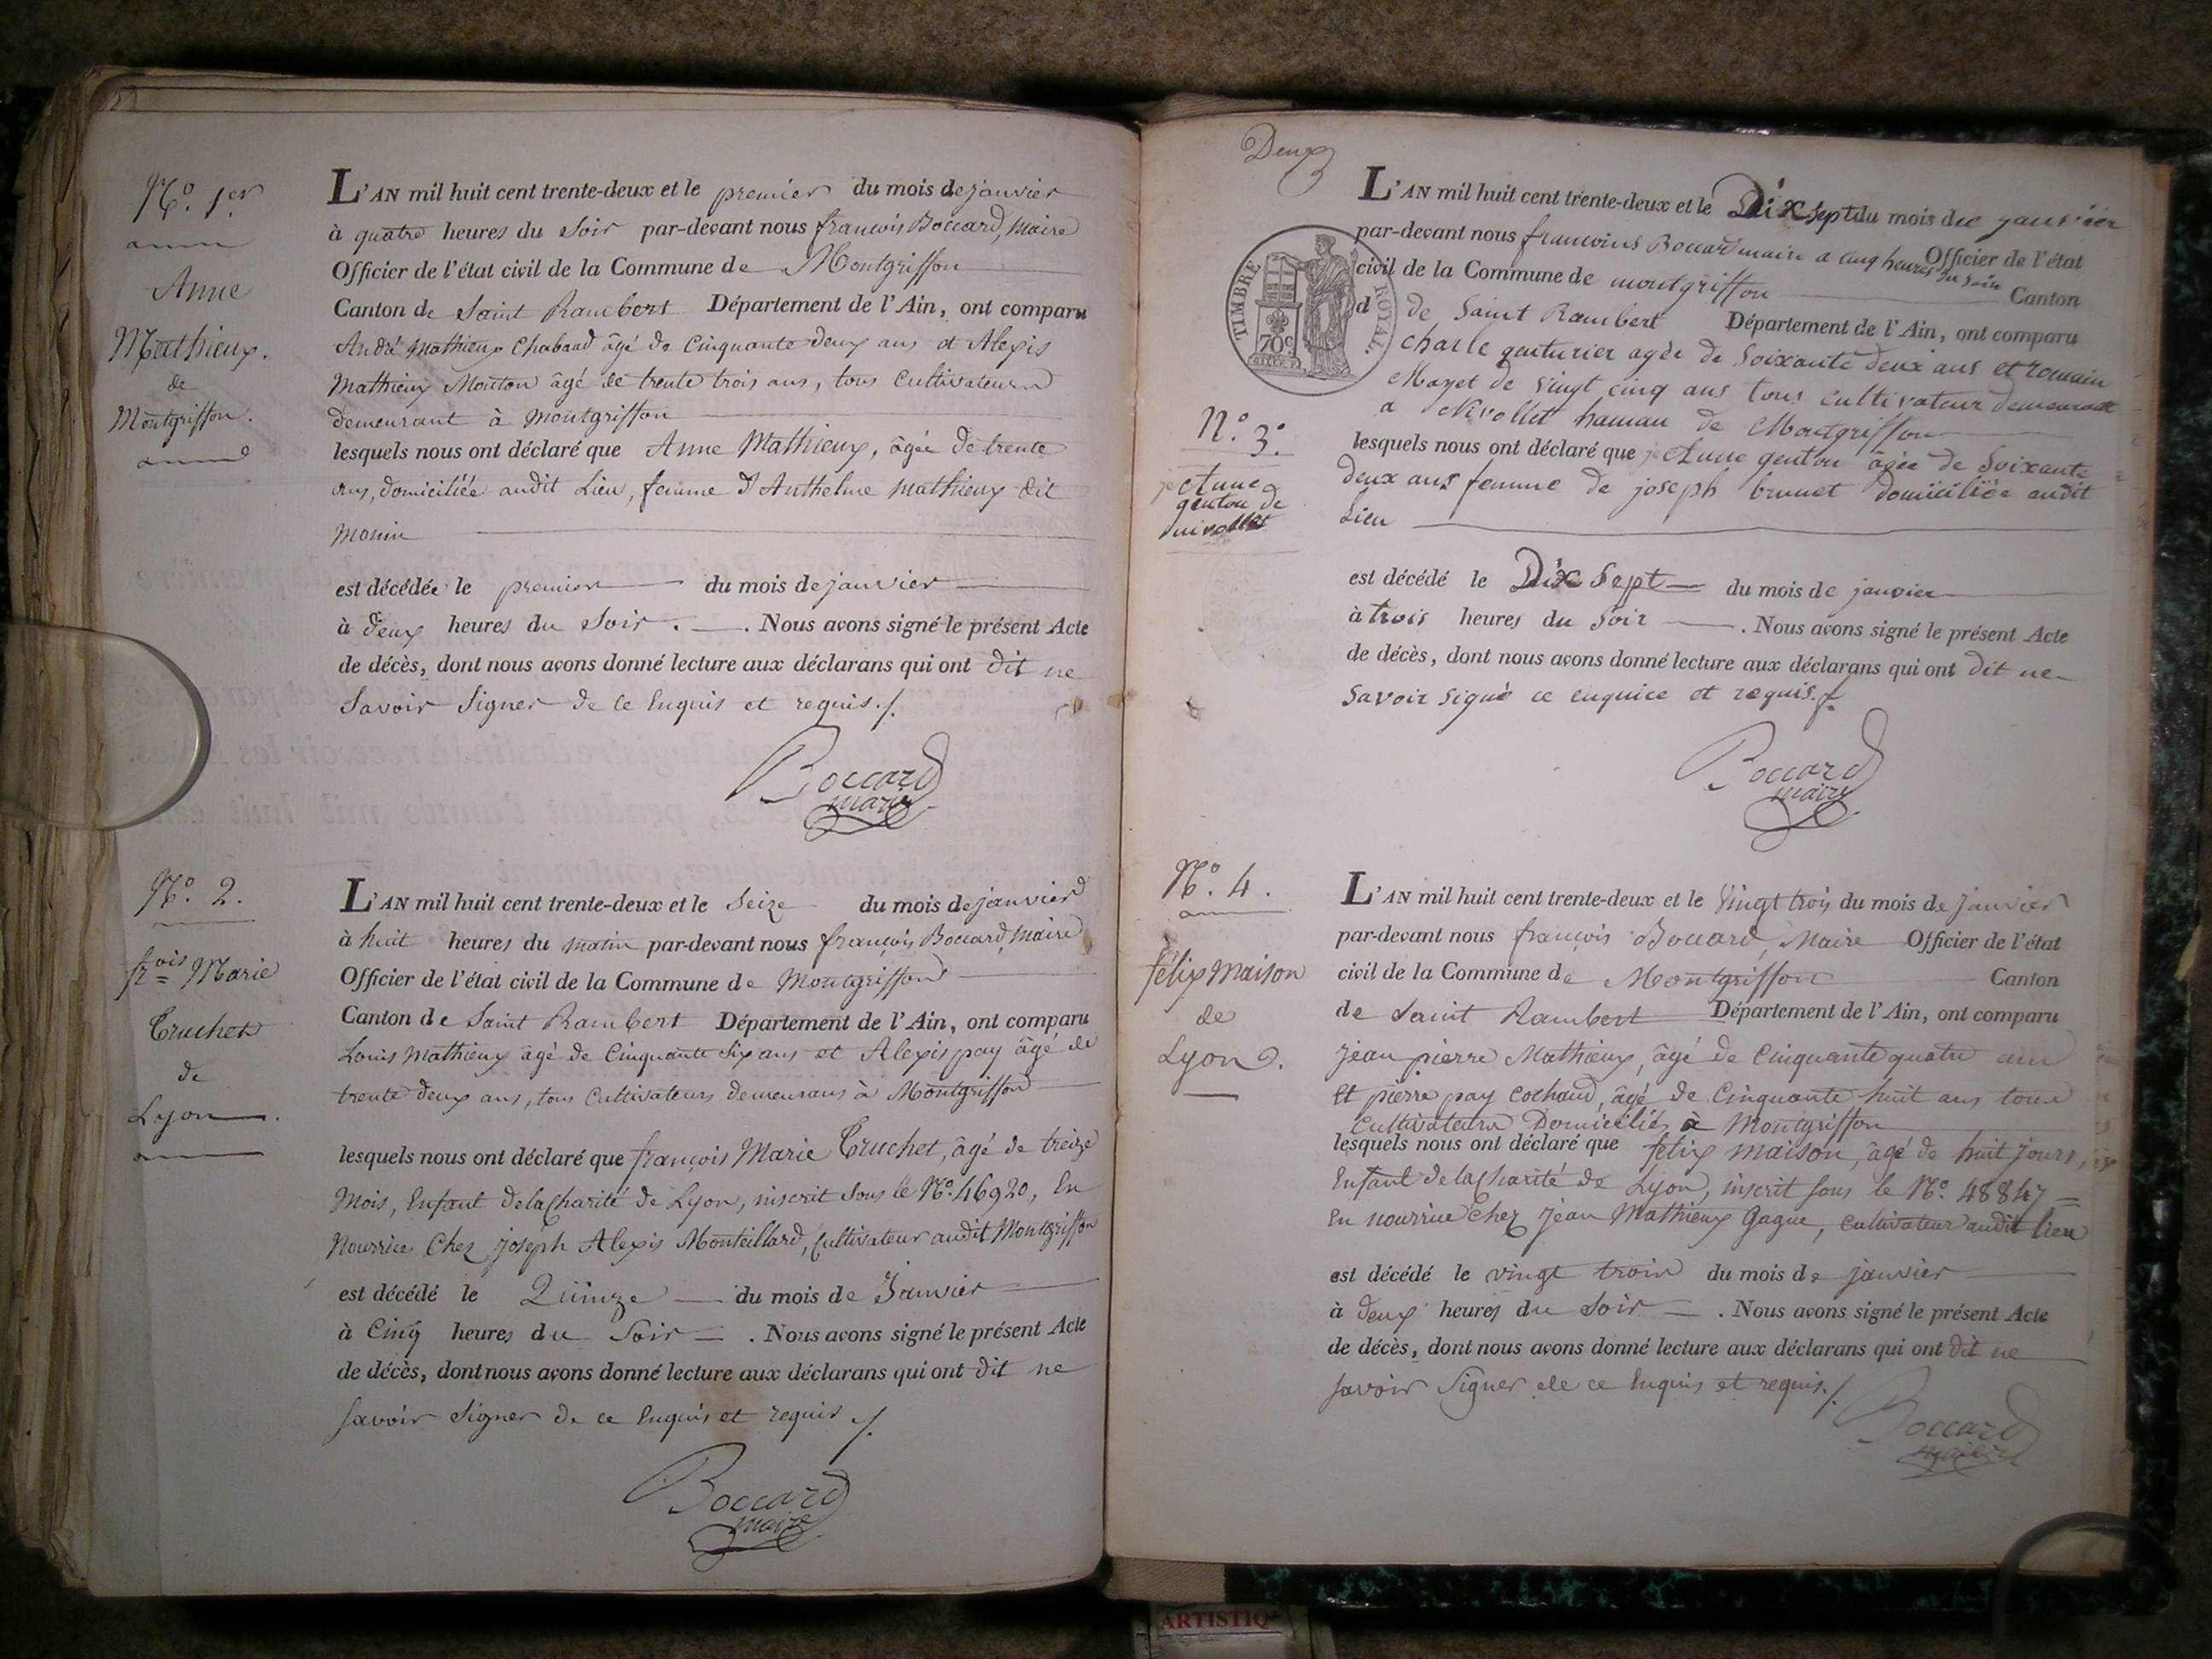 N.º 1.er
Anne
Mathieux.
de
Montgriffon.
L'AN mil huit cent trente-deux et le premier du mois de janvier
à quatre heures du Soir par-devant nous françois Boccard, Maire
Officier de l'état civil de la Commune de Montgriffon
Canton de Saint Rambert Département de l'Ain, ont comparu
André Mathieux Chabaud âgé de Cinquante deux ans et Alexis
Mathieux Mouton âgé de trente trois ans, tous Cultivateurs
demeurant à Montgriffon
lesquels nous ont déclaré que Anne Mathieux, âgée de trente
ans, domiciliée audit Lieu, femme d'Anthelme Mathieux dit
Monin
est décédée le premier du mois de janvier
à deux heures du Soir. Nous avons signé le présent Acte
de décès, dont nous avons donné lecture aux déclarans qui ont dit ne
Savoir Signer de ce Enquis et requis./.
Boccard
maire
N.º 2.
fr.ois Marie
Truchet
de
Lyon.
L'AN mil huit cent trente-deux et le Seize du mois de janvier
à huit heures du matin par-devant nous françois Boccard, Maire
Officier de l'état civil de la Commune de Montgriffon
Canton de Saint Rambert Département de l'Ain, ont comparu
Louis Mathieux âgé de Cinquante Six ans et Alexis pay âgé de
trente deux ans, tous Cultivateurs demeurans à Montgriffon
lesquels nous ont déclaré que françois Marie Truchet, âgé de treize
Mois, Enfant de la Charité de Lyon, inscrit Sous le N.º 46920, En
Nourrice Chez Joseph Alexis Monteillard, Cultivateur audit Montgriffon
est décédé le Quinze du mois de Janvier
à Cinq heures du Soir. Nous avons signé le présent Acte
de décès, dont nous avons donné lecture aux déclarans qui ont dit ne
Savoir Signer de ce Enquis et requis./.
Boccard
maire
Deux
TIMBRE ROYAL.
70c.
N.º 3.º
Anne
genton de
nivollet
L'AN mil huit cent trente-deux et le Dix Sept du mois de janvier
par-devant nous francoins Boccard maire a cinq heures du soir Officier de l'état
civil de la Commune de montgriffon Canton
d de Saint Rambert Département de l'Ain, ont comparu
charle gouturier agée de Soixante deux ans et romain
Mayet de vingt cinq ans tous cultivateur demeurant
a Nivollet hamau de Montgriffon
lesquels nous ont déclaré que Anne genton âgée de Soixante
deux ans femme de joseph brunet domiciliée audit
Lieu
est décédé le Dix Sept du mois de janvier
à trois heures du Soir. Nous avons signé le présent Acte
de décès, dont nous avons donné lecture aux déclarans qui ont dit ne
Savoir Signé ce enquice et requis./.
Boccard
maire
N.º 4.
félix Maison
de
Lyon.
L'AN mil huit cent trente-deux et le Vingt trois du mois de Janvier
par-devant nous françois Boccard, Maire Officier de l'état
civil de la Commune de Montgriffon Canton
de Saint Rambert Département de l'Ain, ont comparu
jean pierre Mathieux, âgé de Cinquante quatre ans
Et pierre pay Cochaud, âgé de Cinquante huit ans tous
Cultivateurs Domiciliés à Montgriffon
lesquels nous ont déclaré que félix Maison, âgé de huit jours,
Enfant de la Charité de Lyon, inscrit Sous le N.º 48847 =
En nourrice chez jean Mathieux Gague, cultivateur audit lieu
est décédé le vingt trois du mois de janvier
à deux heures du Soir. Nous avons signé le présent Acte
de décès, dont nous avons donné lecture aux déclarans qui ont dit ne
Savoir Signer de ce Enquis et requis./.
Boccard
maire
ARTISTIQ